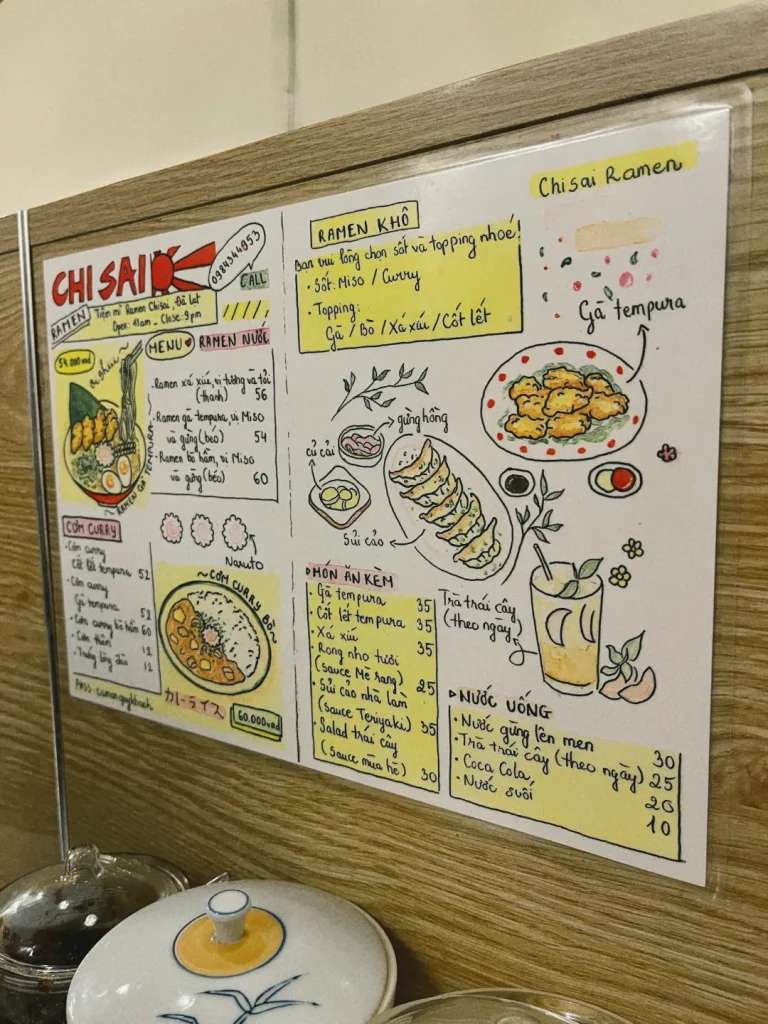 CHISAI
0984344953
CALL
RAMEN
Tiệm mì Ramen Chisai, Đà Lạt
Open: 11am _ Close: 9pm
54.000vnd
MENU
RAMEN NƯỚC
- Ramen xá xíu, vị tương và tỏi
(thanh) 56
- Ramen gà tempura, vị Miso
và gừng (béo) 54
- Ramen bò hầm, vị Miso
và gừng (béo) 60
~RAMEN GÀ TEMPURA~
Naruto
CƠM CURRY
- Cơm curry
Cốt lết tempura 52
- Cơm curry
Gà tempura 52
- Cơm curry bò hầm 60
- Cơm thêm 12
- Trứng lòng đào 12
~CƠM CURRY BÒ~
カレーライス
60.000vnd
RAMEN KHÔ
Bạn vui lòng chọn sốt và topping nhoé!
• Sốt: Miso / Curry
• Topping:
Gà / Bò / Xá xíu / Cốt lết
Chisai Ramen
Gà tempura
gừng hồng
củ cải
Sủi cảo
Trà trái cây
(theo ngày)
MÓN ĂN KÈM
• Gà tempura 35
• Cốt lết tempura 35
• Xá xíu 35
• Rong nho tươi
(sauce Mè rang) 25
• Sủi cảo nhà làm
(sauce Teriyaki) 35
• Salad trái cây
(sauce mùa hè) 30
NƯỚC UỐNG
• Nước gừng lên men 30
• Trà trái cây (theo ngày) 25
• Coca Cola 20
• Nước suối 10